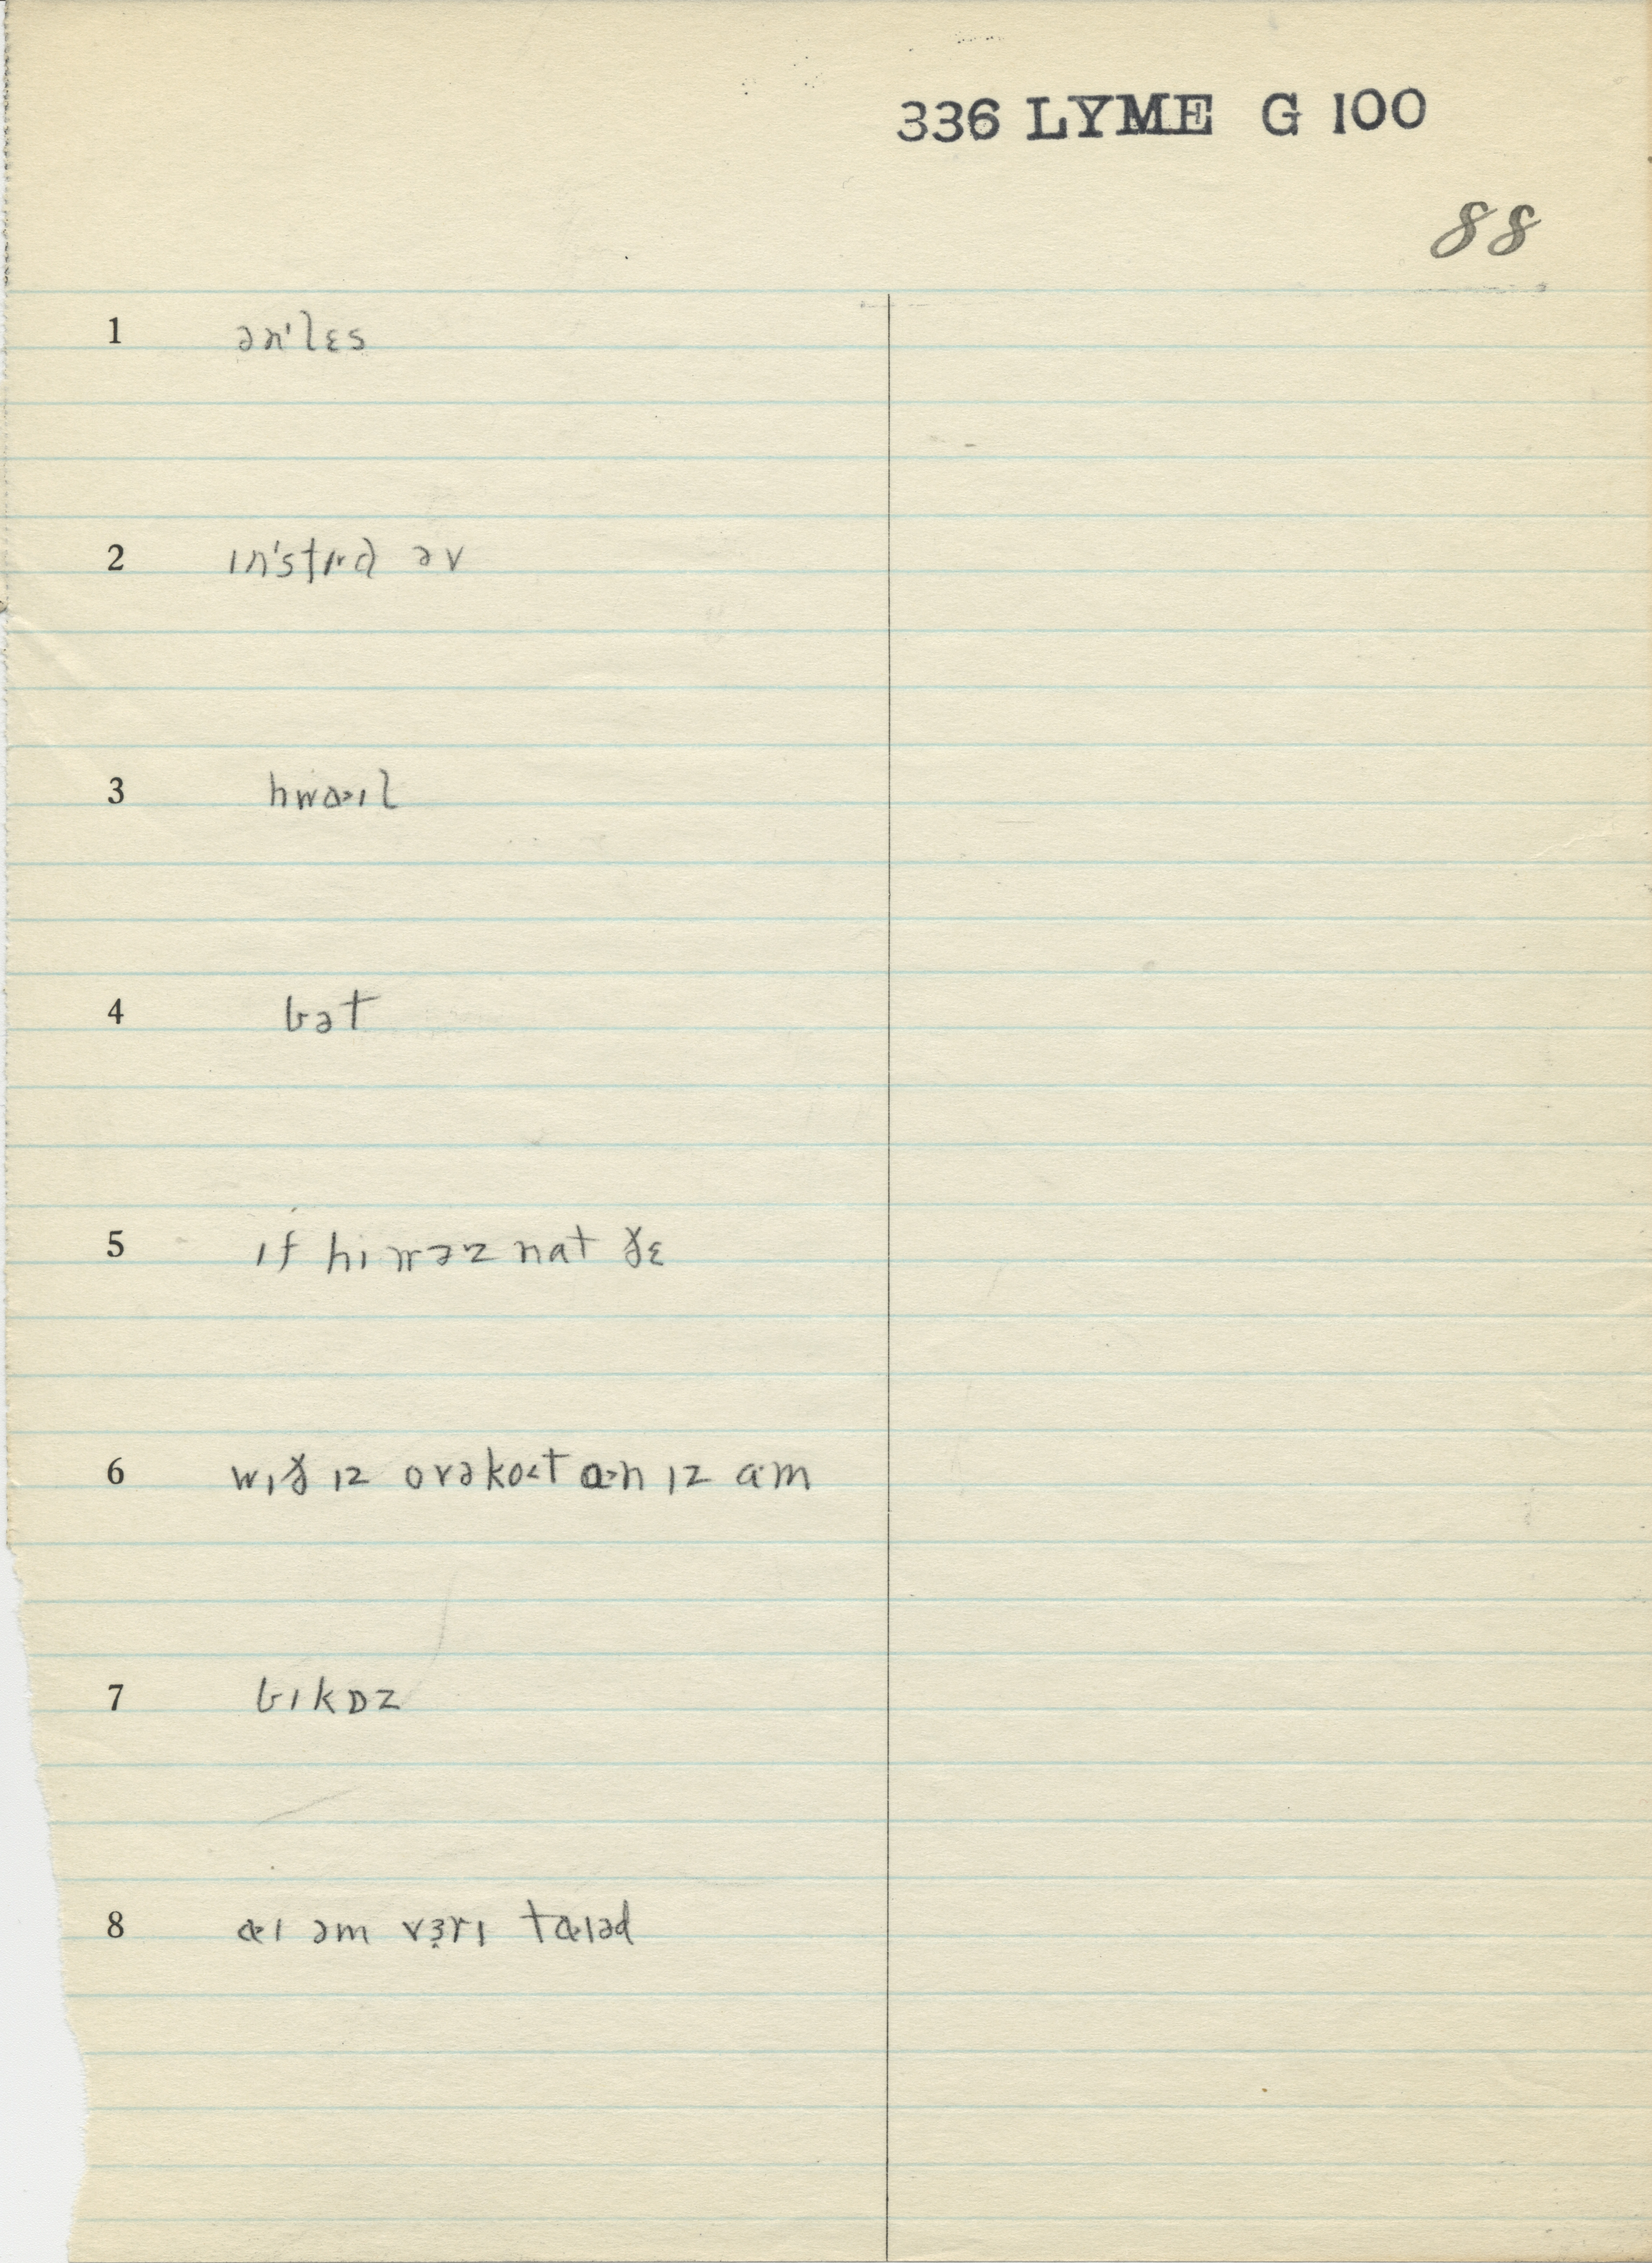 336 LYME G 100
88
1 ən'lɛs
2 ɪn'stɪ·d əv
3 hwɑ˃ɪl
4 bət
5 ɪf hɪ wəz nat ðɛ
6 wɪð ɪz ovəko˂t ɑ˃n ɪz a·m
7 bɪkɒz
8 aɪ əm vɜ̣rɪ taɪəd